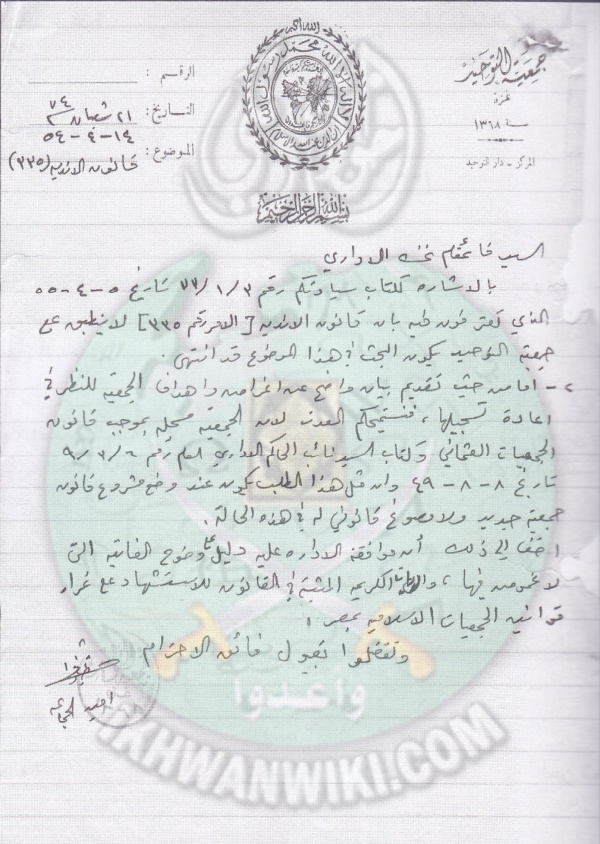 جمعية التوحيد
غزة
سنة ١٣٦٨
المركز - دار التوحيد
الله اكبر
لا اله الا الله محمد رسول الله
الرقم :
التاريخ : ٢١ شعبان ٧٤
١٤-٤-٥٤
الموضوع : قانون الانديه (٣٣٥)
بسم الله الرحمن الرحيم
السيد قائمقام غزه الاداري
بالاشاره لكتاب سيادتكم رقم ٣/١/٢٣ تاريخ ٥-٤-٥٥
الذي تعترفون فيه بان قانون الانديه [الامر رقم ٣٣٥] لا ينطبق على
جمعية التوحيد يكون البحث في هذا الموضوع قد انتهى .
٢- اما من حيث تقديم بيان واضح عن اغراض واهداف الجمعيه للنظر في
اعادة تسجيلها ، فنستميحكم العذر لان الجمعيه مسجله بموجب قانون
الجمعيات العثماني وكتاب السيد نائب الحاكم الاداري العام رقم ٩/٣/٦
تاريخ ٨-٨-٤٩ وان مثل هذا الطلب يكون عند وضع مشروع قانون
جمعية جديد ولا مسوغ قانوني له في هذه الحالة .
اضف الى ذلك أن موافقة الاداره عليه دليل على وضوح الغايه التي
لا غموض فيها ، والآيات الكريمه المثبتة في القانون للاستشهاد على غرار
قوانين الجمعيات الاسلاميه بمصر ،
وتفضلوا بقبول فائق الاحترام
امين الجماعه
واعدوا
IKHWANWIKI.COM